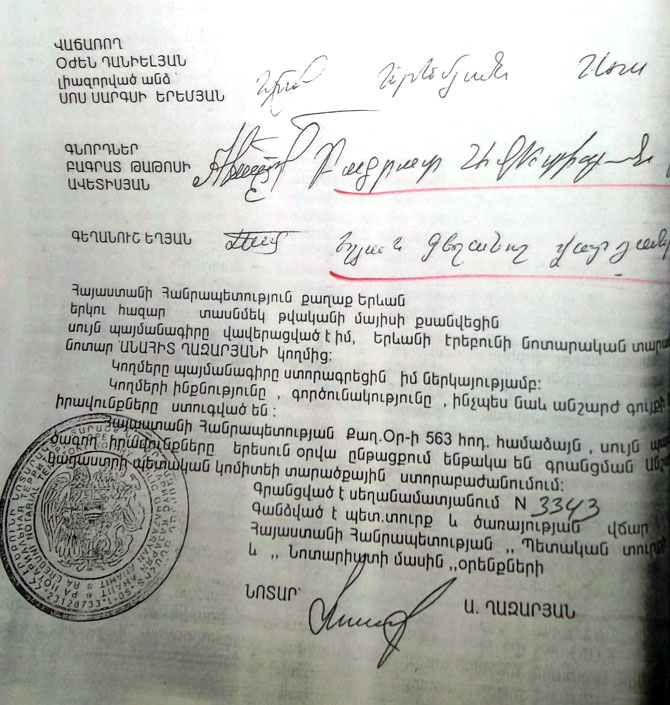 ՎԱՃԱՌՈՂ
ՕԺԵՆ ԴԱՆԻԵԼՅԱՆ
լիազորված անձ՝
ՍՈՍ ՍԱՐԳՍԻ ԵՐԵՄՅԱՆ
Երեմյան Սոս
ԳՆՈՐԴՆԵՐ
ԲԱԳՐԱՏ ԹԱԹՈՍԻ
ԱՎԵՏԻՍՅԱՆ
Բագրատ
ԳԵՂԱՆՈՒՇ ԵՂՅԱՆ
Եղյան Գեղանուշ
Հայաստանի Հանրապետություն քաղաք Երևան
երկու հազար տասնմեկ թվականի մայիսի քսանվեցին
սույն պայմանագիրը վավերացված է իմ, Երևանի էրեբունի նոտարական տարա
նոտար ՝ԱՆԱՀԻՏ ՂԱԶԱՐՅԱՆԻ կողմից:
Կողմերը պայմանագիրը ստորագրեցին իմ ներկայությամբ:
Կողմերի ինքնությունը , գործունակությունը , ինչպես նաև անշարժ գույքի
իրավունքները ստուգված են :
Հայաստանի Հանրապետության Քաղ.Օր-ի 563 հոդ. համաձայն , սույն պա
ծագող իրավունքները երեսուն օրվա ընթացքում ենթակա են գրանցման Ան
կադաստրի պետական կոմիտեի տարածքային ստորաբաժանումում:
Գրանցված է սեղանամատյանում N 3343
Գանձված է պետ.տուրք և ծառայության վճար
Հայաստանի Հանրապետության ,, Պետական տուրք
և ,, Նոտարիատի մասին ,,օրենքների
ՆՈՏԱՐ՝ Ա. ՂԱԶԱՐՅԱՆ